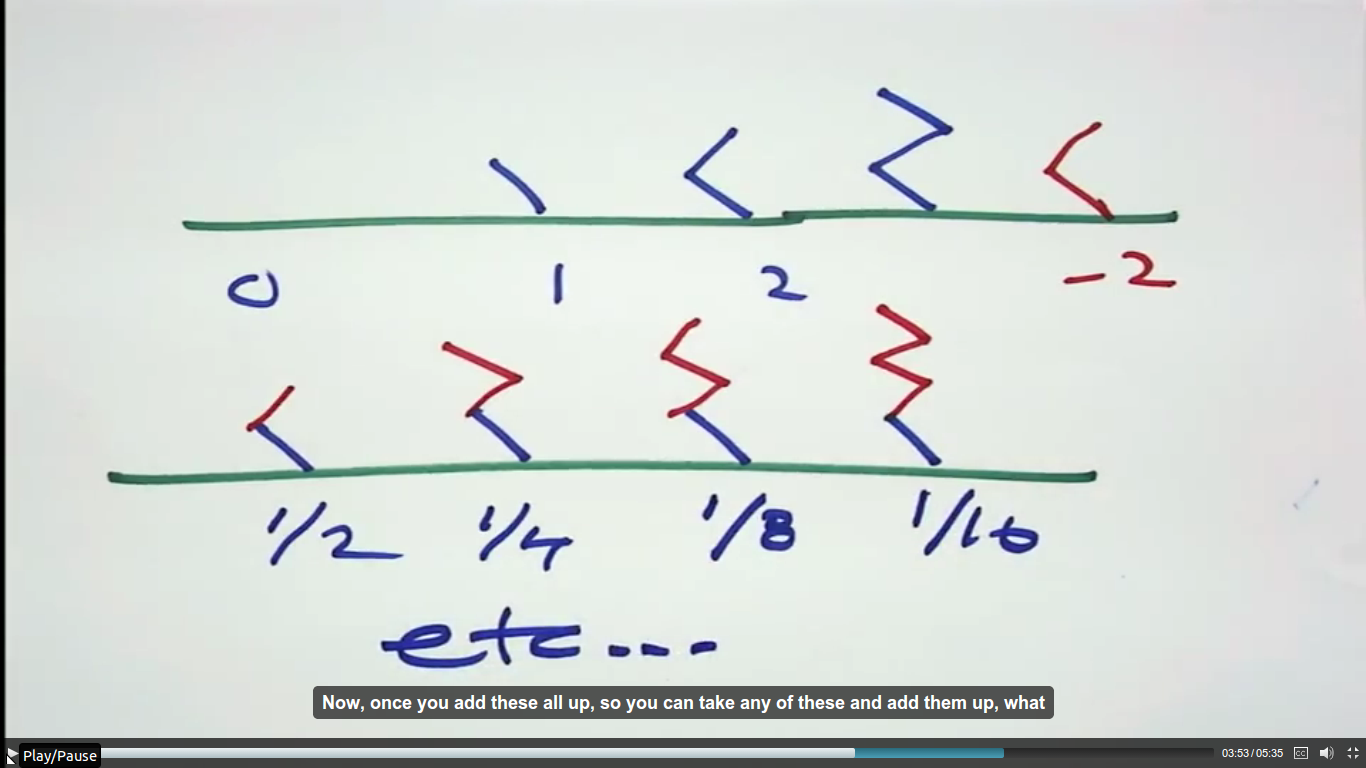 0 1 2 -2
1/2 1/4 1/8 1/16
etc...
Now, once you add these all up, so you can take any of these and add them up, what
Play/Pause 03:53/05:35 CC